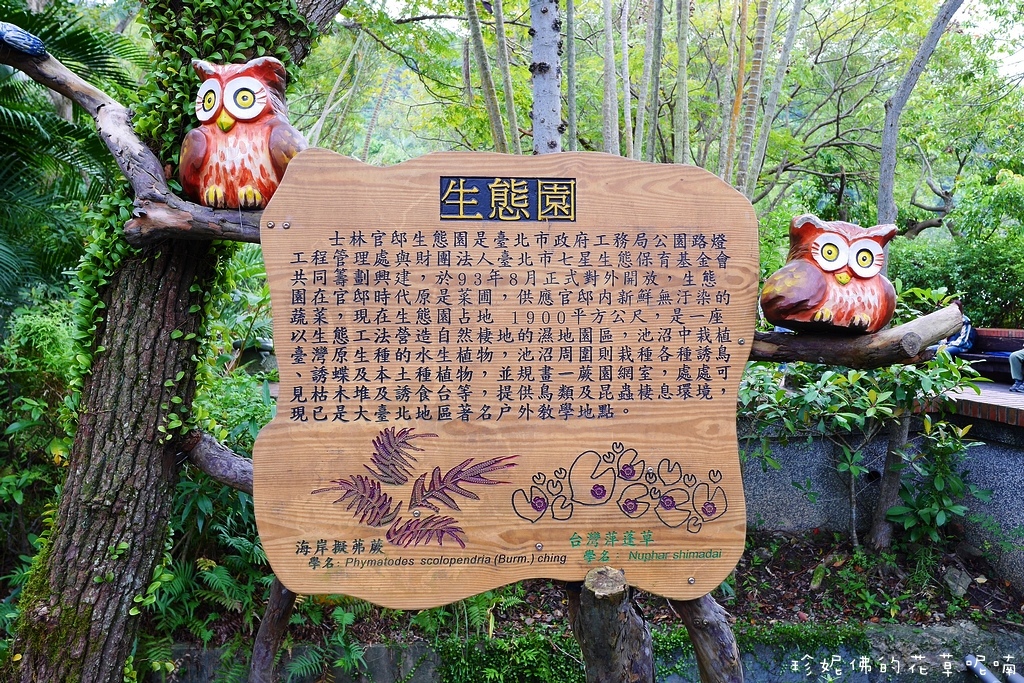 生態園
士林官邸生態園是臺北市政府工務局公園路燈
工程管理處與財團法人臺北市七星生態保育基金會
共同籌劃興建，於93年8月正式對外開放，生態
園在官邸時代原是菜圃，供應官邸內新鮮無汙染的
蔬菜，現在生態園占地 1900平方公尺，是一座
以生態工法營造自然棲地的濕地園區，池沼中栽植
臺灣原生種的水生植物，池沼周圍則栽種各種誘鳥
、誘蝶及本土種植物，並規畫一蕨園網室，處處可
見枯木堆及誘食台等，提供鳥類及昆蟲棲息環境，
現已是大臺北地區著名戶外教學地點。
海岸擬茀蕨
學名: Phymatodes scolopendria (Burm.) ching
台灣萍蓬草
學名: Nuphar shimadai
珍妮佛的花草呢喃